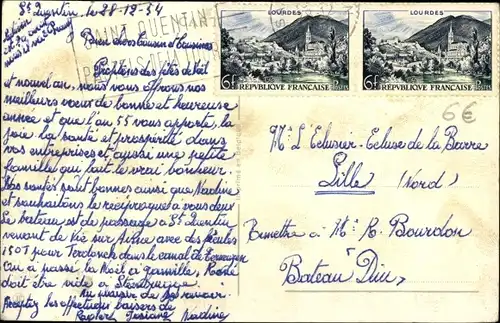 St Quentin le 28-12-54
Bien chers cousin et cousines
Profitons des fêtes de Noël
et nouvel an, nous vous offrons nos
meilleurs vœux de bonne et heureuse
année et que l'an 55 vous apporte, la
joie la santé et prospérité dans
vos entreprises et aussi une petite
famille qui fait le vrai bonheur.
Nos santés sont bonnes ainsi que Nadine
et souhaitons le réciproque à vous deux
Le bateau est de passage a St Quentin
venant de Vic sur Aisne avec des
150T pour dans le canal de
On a passé la Noël a famille,
doit être vide a
Au plaisir de vous revoir.
Recevez les affectueux baisers de
Robert Josiane Nadine
SAINT QUENTIN
LOURDES
6F REPVBLIQVE FRANÇAISE
LOURDES
6F REPVBLIQVE FRANÇAISE
6€
Mr L'Eclusier - Ecluse de la Barre
Lille (Nord)
Remettre a Mr R. Bourdon
Bateau Dieu